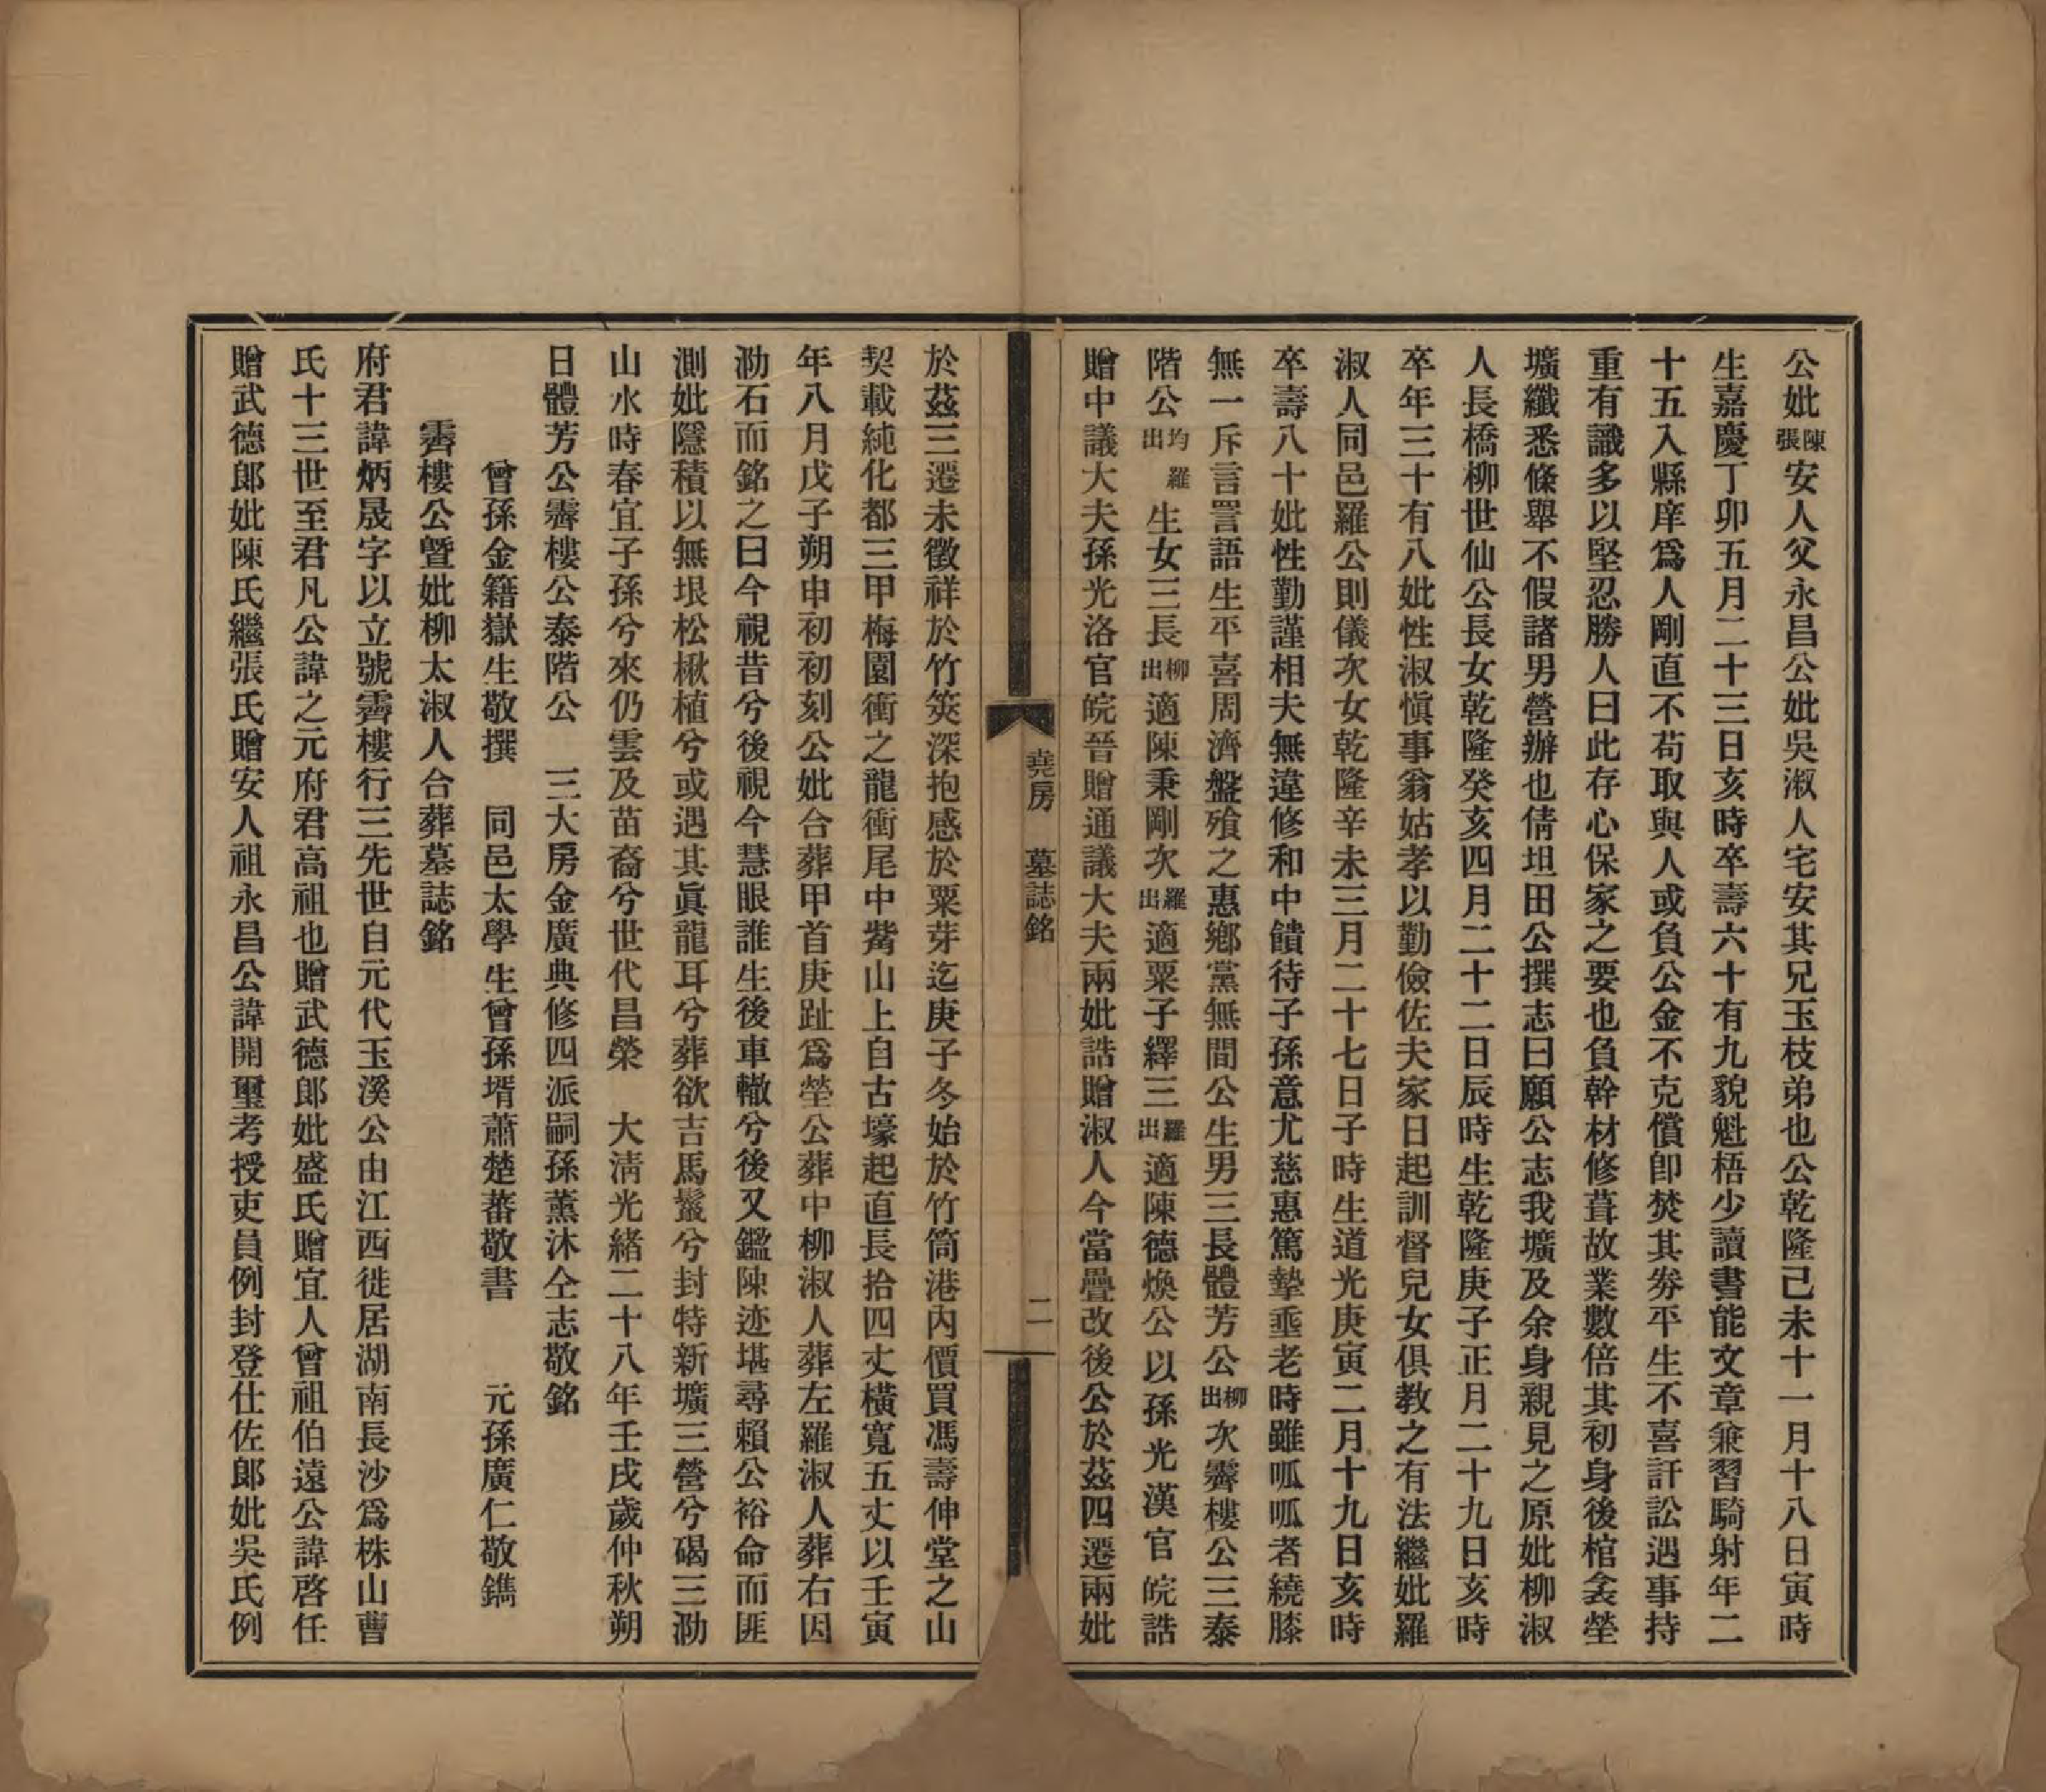 公妣陳張安人父永昌公妣吳淑人宅安其兄玉枝弟也公乾隆己未十一月十八日寅時
生嘉慶丁卯五月二十三日亥時卒壽六十有九貌魁梧少讀書能文章兼習騎射年二
十五入縣庠爲人剛直不苟取與人或負公金不克償卽焚其券平生不喜訐訟遇事持
重有識多以堅忍勝人曰此存心保家之要也負幹材修葺故業數倍其初身後棺衾塋
壙纖悉條舉不假諸男營辦也倩坦田公撰志曰願公志我壙及余身親見之原妣柳淑
人長橋柳世仙公長女乾隆癸亥四月二十二日辰時生乾隆庚子正月二十九日亥時
卒年三十有八妣性淑愼事翁姑孝以勤儉佐夫家日起訓督兒女俱敎之有法繼妣羅
淑人同邑羅公則儀次女乾隆辛未三月二十七日子時生道光庚寅二月十九日亥時
卒壽八十妣性勤謹相夫無違修和中饋待子孫意尤慈惠篤摯垂老時雖呱呱者繞膝
無一斥言詈語生平喜周濟盤飱之惠鄕黨無間公生男三長體芳公柳出次霽樓公三泰
階公均羅出生女三長柳出適陳秉剛次羅出適粟子繹三羅出適陳德煥公以孫光漢官皖誥
贈中議大夫孫光洛官皖晉贈通議大夫兩妣誥贈淑人今當疊改後公於茲四遷兩妣
堯房 墓誌銘 二
於茲三遷未徵祥於竹筴深抱感於粟芽迄庚子冬始於竹筒港內價買馮壽伸堂之山
契載純化都三甲梅園衝之龍衝尾中觜山上自古壕起直長拾四丈橫寬五丈以壬寅
年八月戊子朔申初初刻公妣合葬甲首庚趾爲塋公葬中柳淑人葬左羅淑人葬右因
泐石而銘之曰今視昔兮後視今慧眼誰生後車轍兮後又鑑陳迹堪尋賴公裕命而匪
測妣隱積以無垠松楸植兮或遇其眞龍耳兮葬欲吉馬鬣兮封特新壙三營兮碣三泐
山水時春宜子孫兮來仍雲及苗裔兮世代昌榮 大淸光緒二十八年壬戌歲仲秋朔
日體芳公霽樓公泰階公 三大房金廣典修四派嗣孫薰沐仝志敬銘
曾孫金籍嶽生敬撰 同邑太學生曾孫壻蕭楚蕃敬書 元孫廣仁敬鐫
霽樓公曁妣柳太淑人合葬墓誌銘
府君諱炳晟字以立號霽樓行三先世自元代玉溪公由江西徙居湖南長沙爲株山曹
氏十三世至君凡公諱之元府君高祖也贈武德郞妣盛氏贈宜人曾祖伯遠公諱啓任
贈武德郞妣陳氏繼張氏贈安人祖永昌公諱開璽考授吏員例封登仕佐郞妣吳氏例